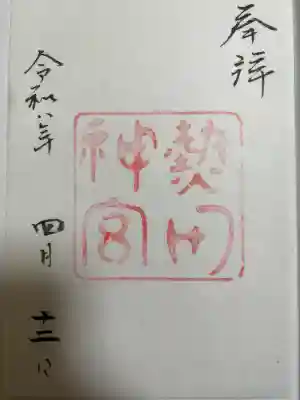 奉拝
熱田
神宮
令和八年 四月 十二日